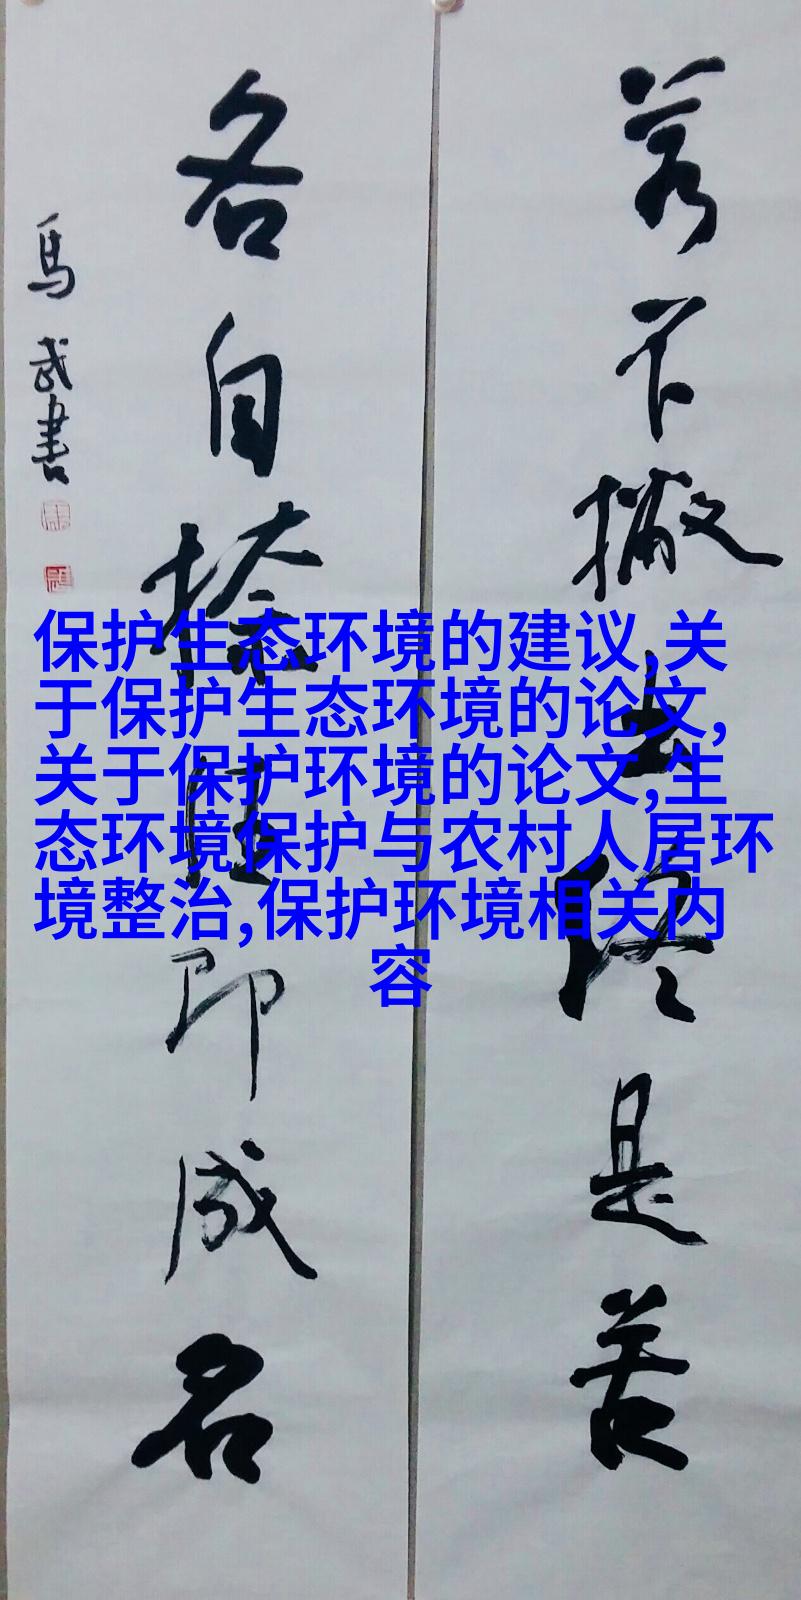 若不撇去终是苦
各自捺住即成名
馬武書
保护生态环境的建议,关
于保护生态环境的论文,
关于保护环境的论文,生
态环境保护与农村人居环
境整治,保护环境相关内
容